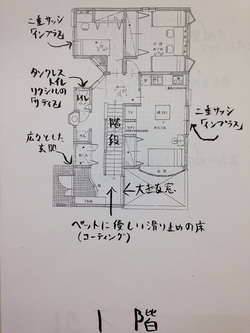 二重サッシ
「インプラス」
タンクレス
トイレ
リクシルの
「サティス」
広々とした
玄関
階段
二重サッシ
「インプラス」
大きな窓
ペットに優しい滑り止めの床
(コーティング)
1階